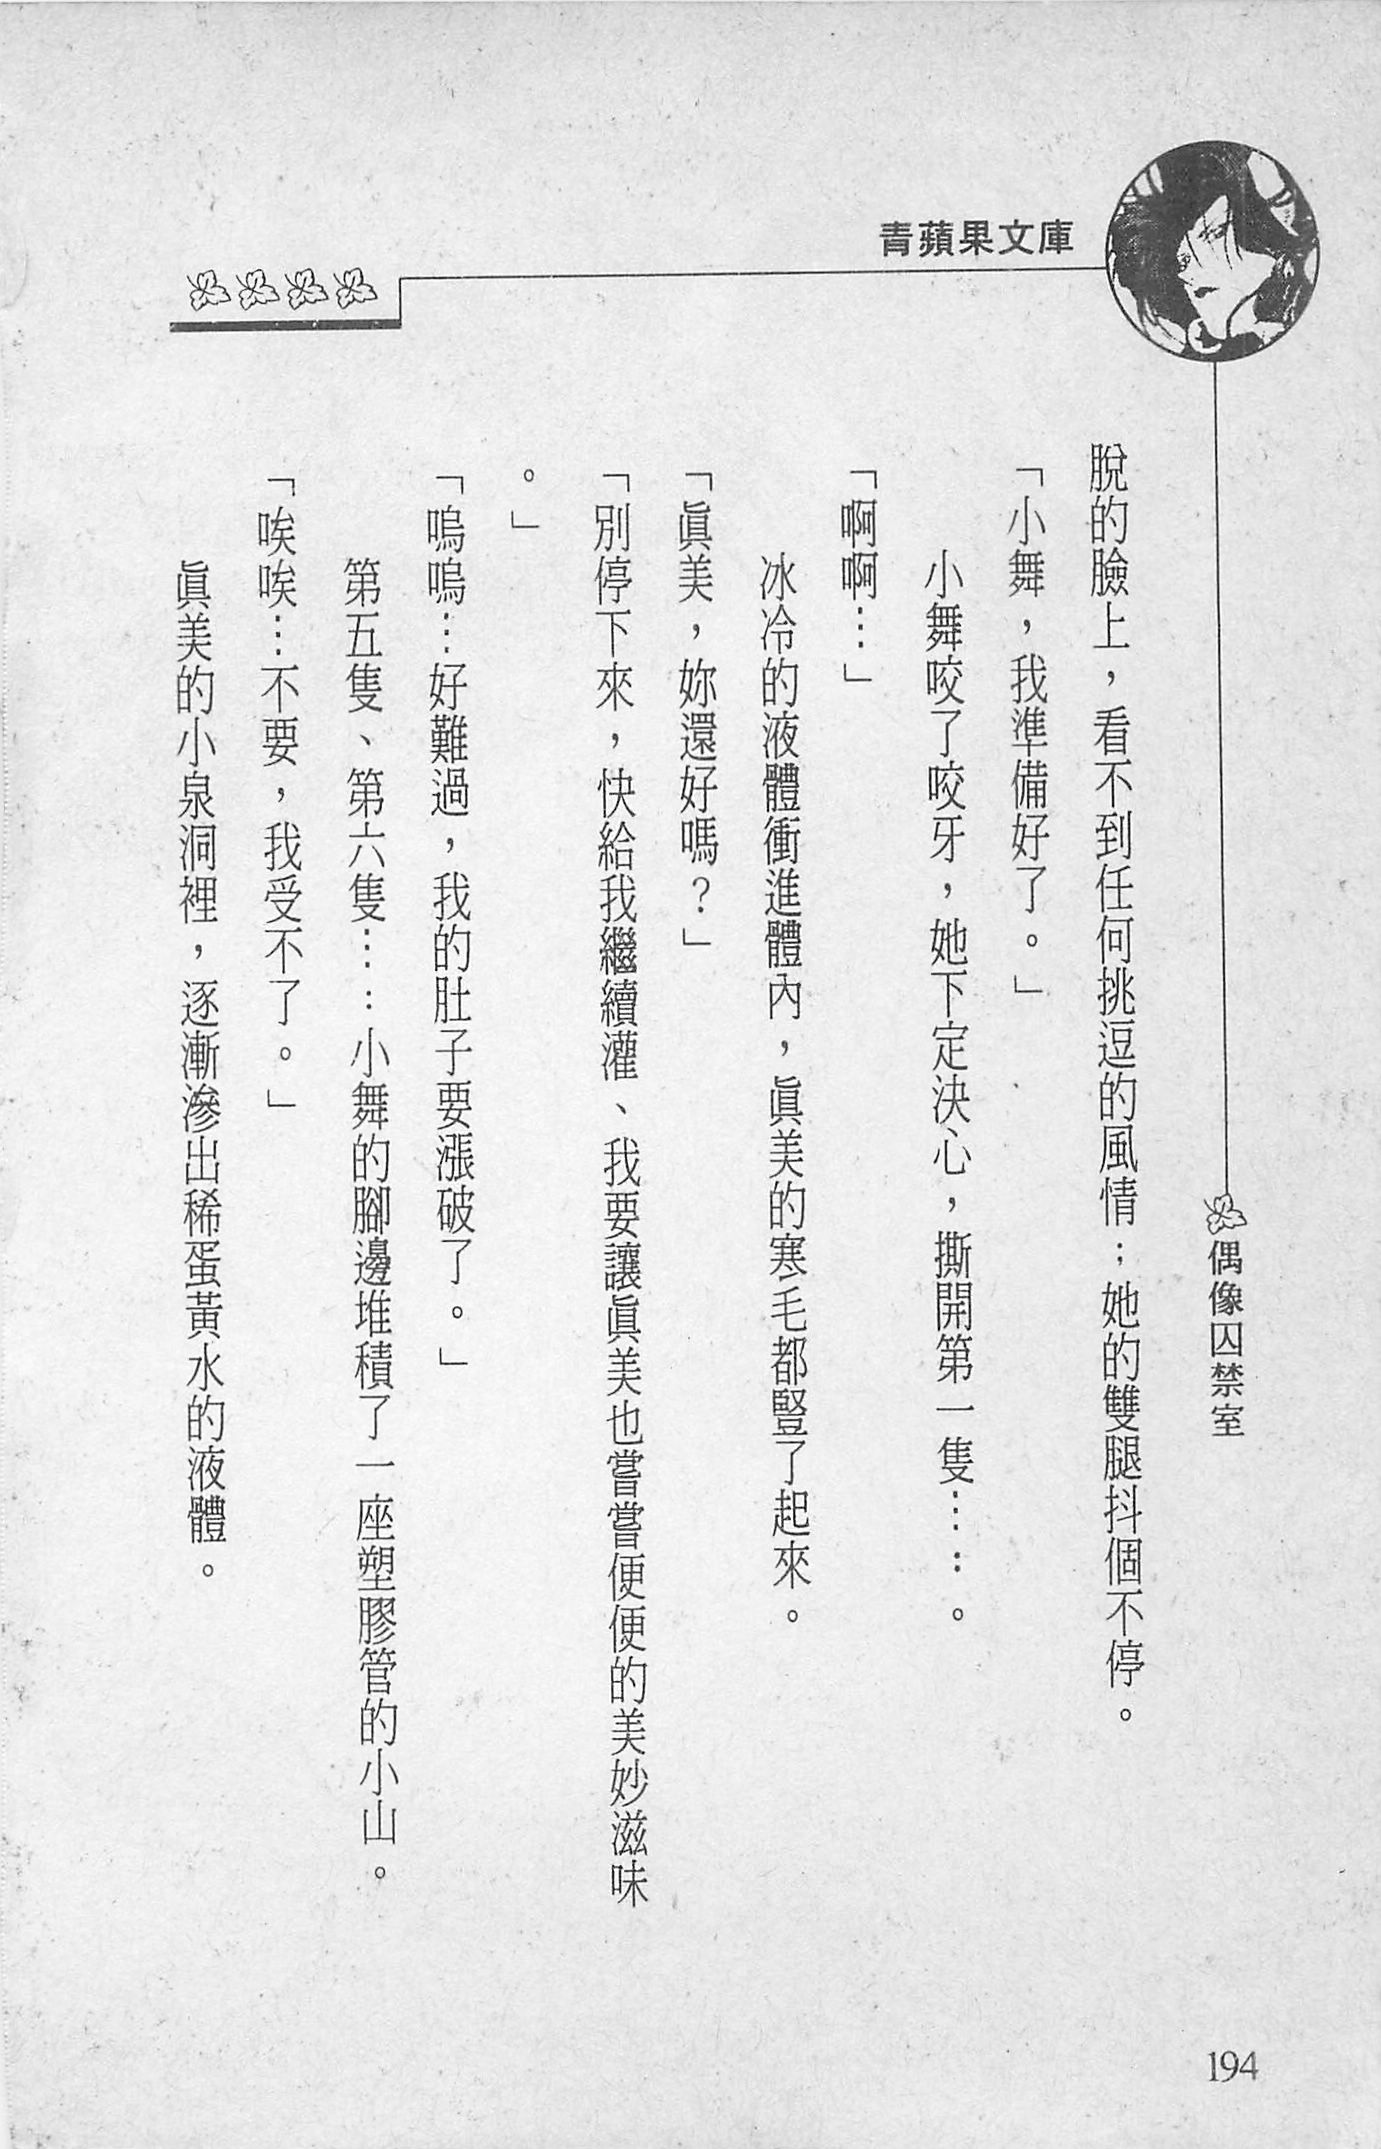 青蘋果文庫
偶像囚禁室
脫的臉上，看不到任何挑逗的風情；她的雙腿抖個不停。
「小舞，我準備好了。」
小舞咬了咬牙，她下定決心，撕開第一隻……。
「啊啊…」
冰冷的液體衝進體內，眞美的寒毛都豎了起來。
「眞美，妳還好嗎？」
「別停下來，快給我繼續灌、我要讓眞美也嘗嘗便便的美妙滋味
。」
「嗚嗚…好難過，我的肚子要漲破了。」
第五隻、第六隻……小舞的腳邊堆積了一座塑膠管的小山。
「唉唉…不要，我受不了。」
眞美的小泉洞裡，逐漸滲出稀蛋黃水的液體。
194